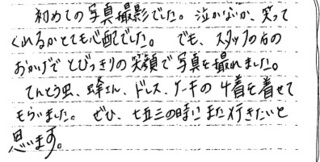 初めての写真撮影でした。泣かないか、笑って
くれるかとても心配でした。でも、スタッフの方の
おかげでとびっきりの笑顔で写真を撮れました。
てんとう虫、蜂さん、ドレス、ケーキの4着を着せて
もらいました。ぜひ、七五三の時にまた行きたいと
思います。